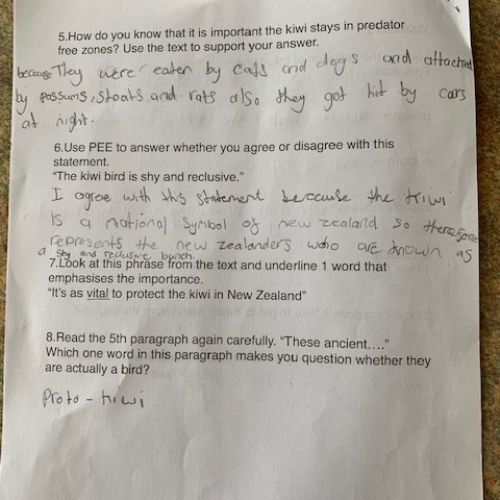 5.How do you know that it is important the kiwi stays in predator
free zones? Use the text to support your answer.
because They were eaten by cats and dogs and attached
by possums, stoats and rats also they got hit by cars
at night.
6.Use PEE to answer whether you agree or disagree with this
statement.
“The kiwi bird is shy and reclusive.”
I agree with this statement because the kiwi
is a national symbol of new zealand so therefore
represents the new zealanders who are known as
a shy and reclusive bunch.
7.Look at this phrase from the text and underline 1 word that
emphasises the importance.
“It’s as vital to protect the kiwi in New Zealand”
8.Read the 5th paragraph again carefully. “These ancient....”
Which one word in this paragraph makes you question whether they
are actually a bird?
Proto - kiwi